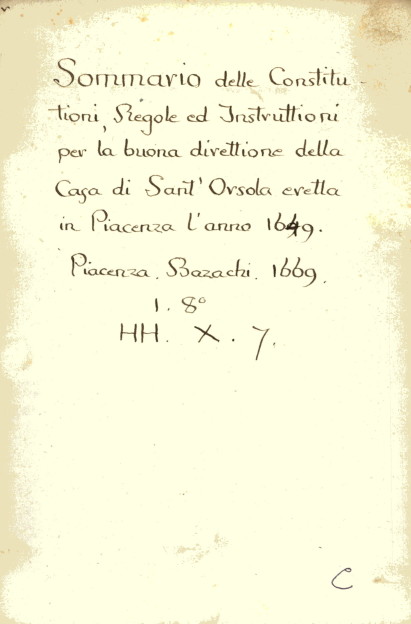 Sommario delle Constitu-
tioni, Regole ed Instruttioni
per la buona direttione della
Casa di Sant' Orsola eretta
in Piacenza l'anno 1649.
Piacenza. Bazachi. 1669.
1. 8°
HH. X. 7.
C